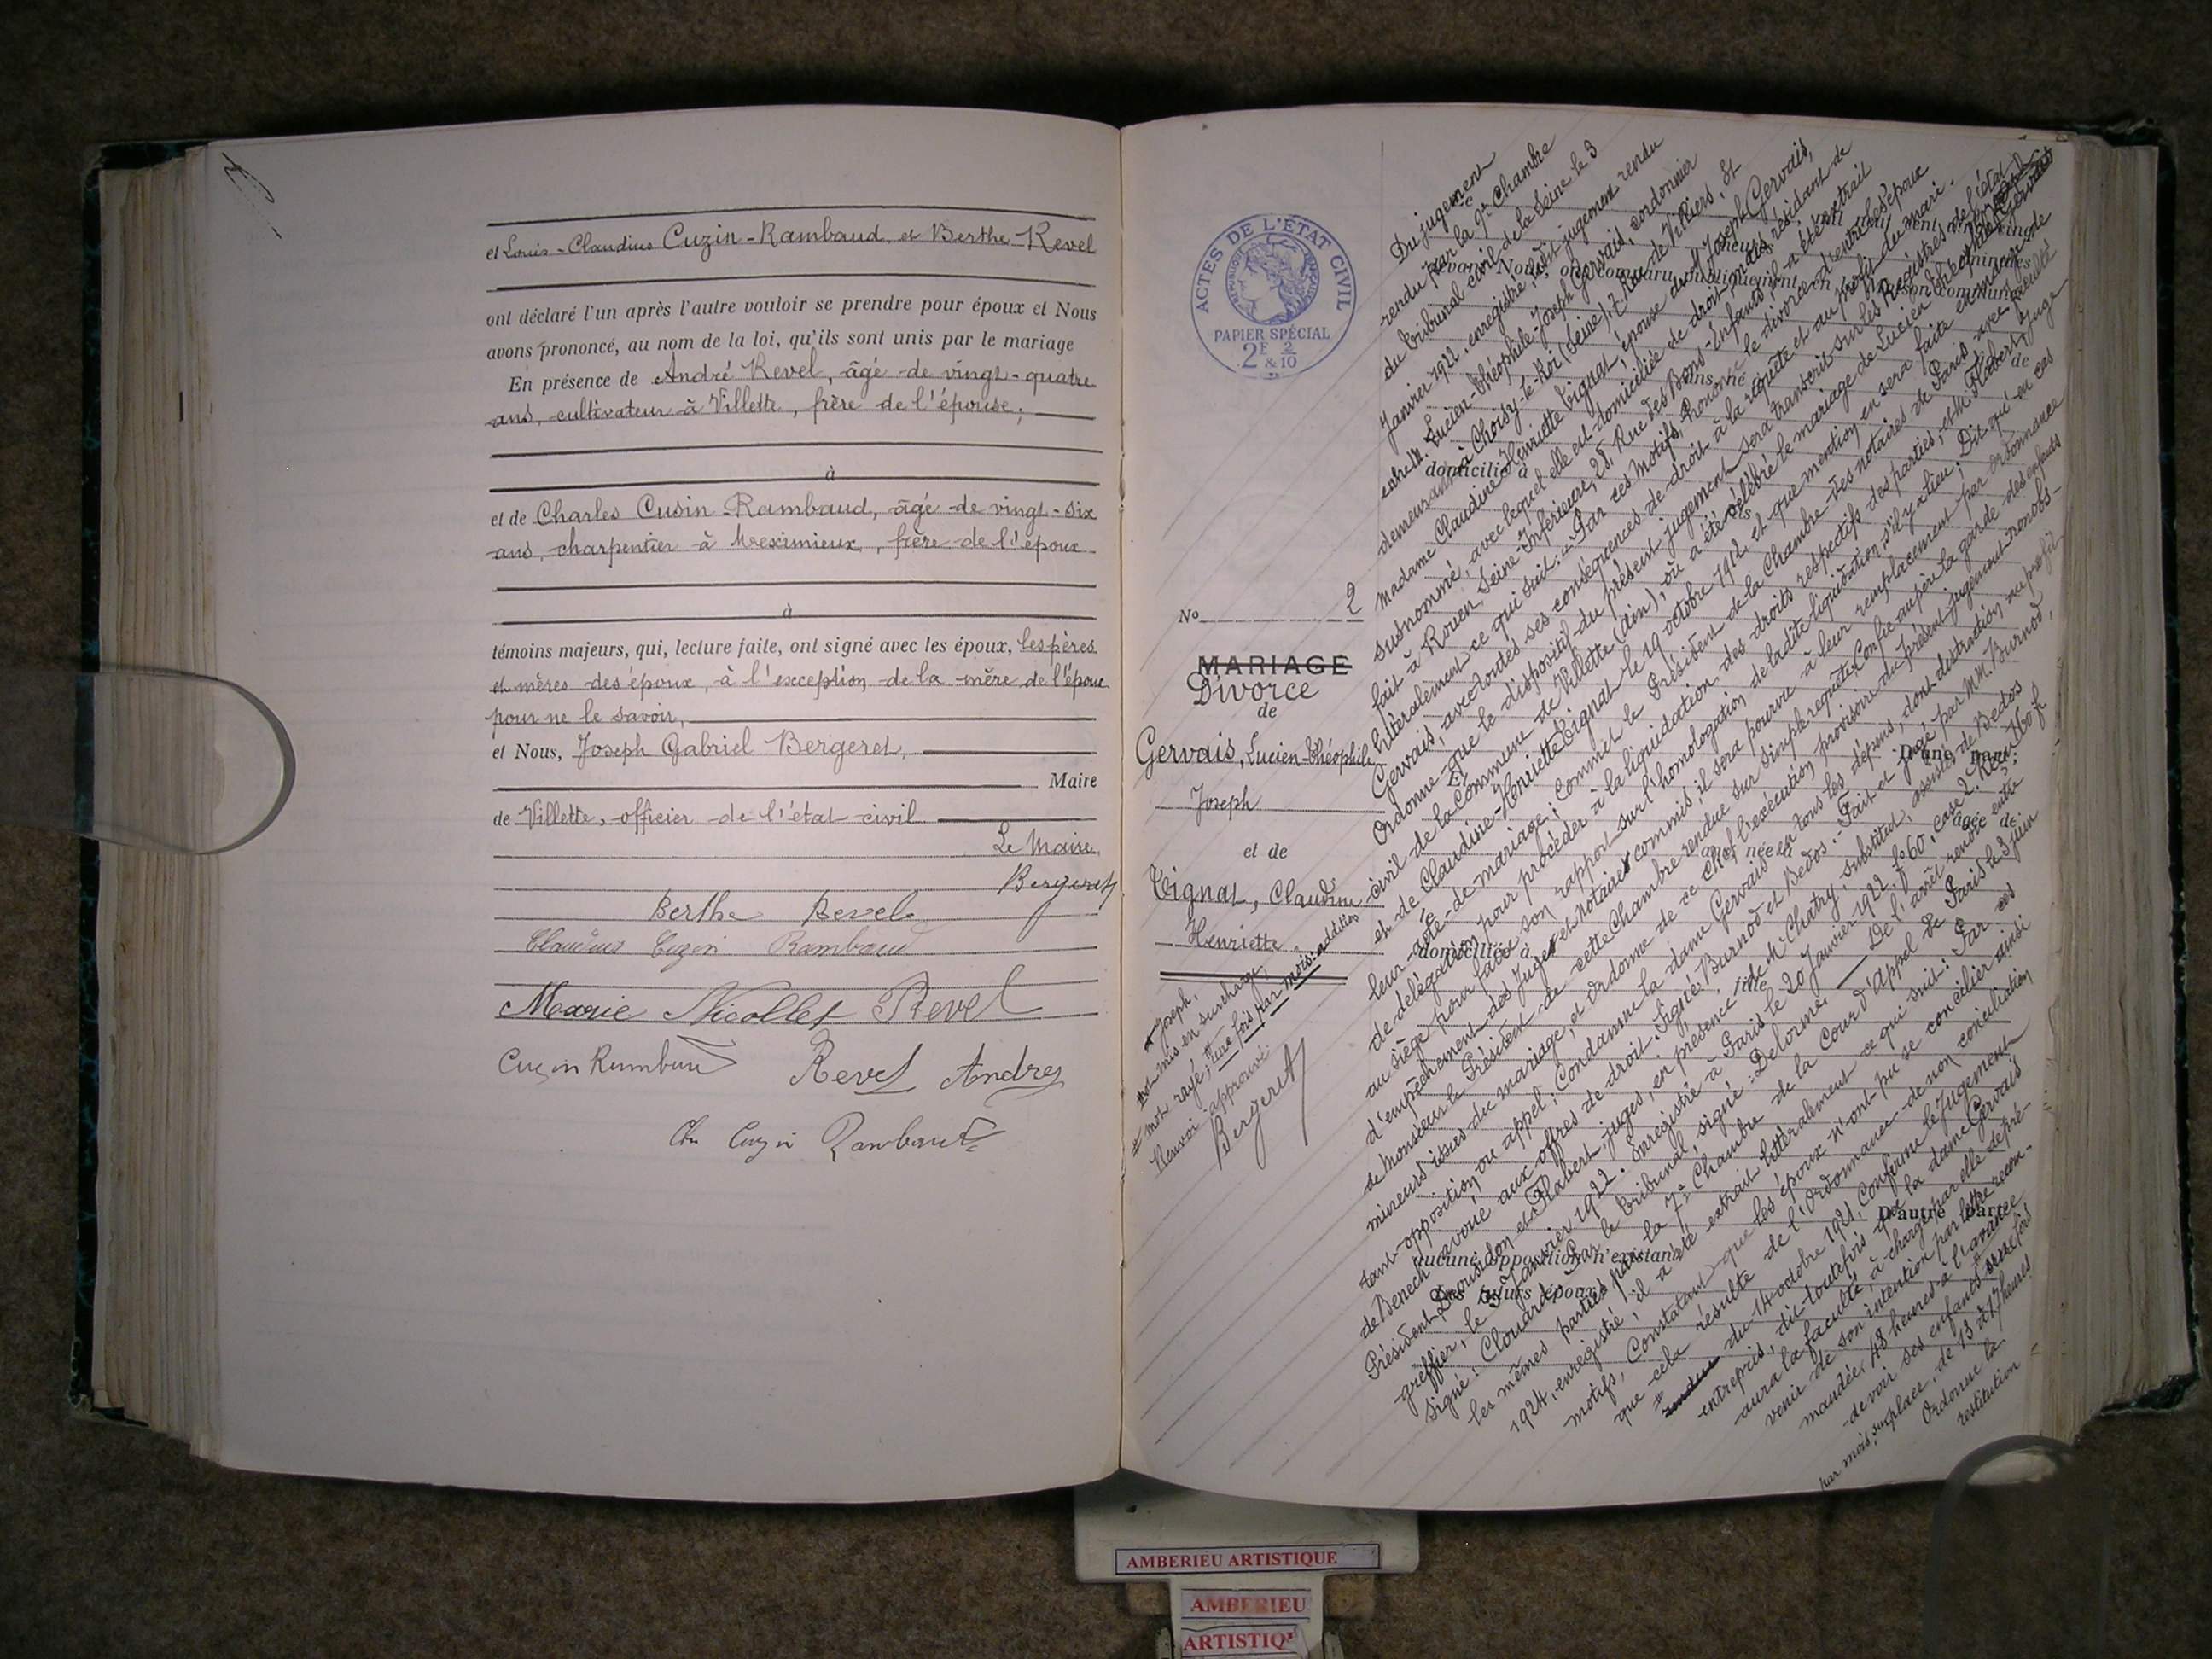 et Louis-Claudius Cuzin-Rambaud, et Berthe Revel
ont déclaré l'un après l'autre vouloir se prendre pour époux et Nous
avons prononcé, au nom de la loi, qu'ils sont unis par le mariage
En présence de André Revel, âgé de vingt-quatre
ans, cultivateur à Villette, frère de l'épouse;
à
et de Charles Cusin-Rambaud, âgé de vingt-six
ans, charpentier à Meximieux, frère de l'époux
à
témoins majeurs, qui, lecture faite, ont signé avec les époux, les pères
et mères des époux, à l'exception de la mère de l'époux
pour ne le savoir,
et Nous, Joseph Gabriel Bergeret,
Maire
de Villette, officier de l'état civil
Le Maire,
Bergeret
Berthe Revel
Claudius Cuzin Rambaud
Marie Nicollet Revel
Cuzin Rambaud Revel André
Ch Cuzin Rambaud
ACTES DE L'ÉTAT CIVIL
PAPIER SPÉCIAL
2F 2/10
& 10
No 2
MARIAGE
Divorce
de
Gervais, Lucien-Théophile
Joseph
et de
Tignat, Claudine
Henriette
* Joseph,
mot mis en surcharge,
mot rayé; une fois par mois: addition
Renvoi approuvé
Bergeret
Du jugement
rendu par la 9e Chambre
du tribunal civil de la Seine le 3
Janvier 1922, enregistré, ledit jugement rendu
entre M. Lucien-Théophile-Joseph Gervais, cordonnier
demeurant à Choisy-le-Roi (Seine), 7, Rue de Villiers, Et
Madame Claudine Henriette Tignat, épouse du M. Joseph Gervais,
susnommé, avec lequel elle est domiciliée de droit, mais résidant de
fait à Rouen, Seine Inférieure, 25, Rue des Bons-Enfants, il a été extrait
littéralement ce qui suit: Par ces motifs, Prononce le divorce d'entre les époux
Gervais, avec toutes ses conséquences de droit à la requête et au profit du mari.
Ordonne que le dispositif du présent jugement sera transcrit sur les Registres de l'état
civil de la Commune de Villette (Ain), où a été célébré le mariage de Lucien Théophile Gervais
et de Claudine-Henriette Tignat le 19 octobre 1912 et que mention en sera faite en marge de
leur acte de mariage; Commet le Président de la Chambre des notaires de Paris avec faculté
de délégation pour procéder à la liquidation des droits respectifs des parties, et M. Flabert, Juge
au siège pour faire son rapport sur l'homologation de ladite liquidation, s'il y a lieu; Dit qu'en cas
d'empêchement des Juges et notaires commis, il sera pourvu à leur remplacement par ordonnance
de Monsieur le Président de cette Chambre rendue sur simple requête; Confie au père la garde des enfants
mineurs issus du mariage, et ordonne de ce chef l'exécution provisoire du présent jugement nonobs-
tant opposition ou appel; Condamne la dame Gervais en tous les dépens, dont distraction au profit
de Benech avoué aux offres de droit. Signé: Burnod et Bedos. Fait et jugé par MM. Burnod,
Président, et Flabert, juges, en présence de M. Chatry, substitut, assistés de Bedos
greffier, le 3 Janvier 1922. Enregistré à Paris le 20 Janvier 1922, fo 60, case 2. Reçu
signé: Par le tribunal, signé: Delorme. De l'arrêt rendu entre
les mêmes parties par la 7e Chambre de la Cour d'Appel de Paris le 3 juin
1924, enregistré; il a été extrait littéralement ce qui suit: Par ces
motifs, Constatant que les époux n'ont pu se concilier ainsi
que cela résulte de l'Ordonnance de non conciliation
du 14 octobre 1921, Confirme le Jugement
entrepris, dit toutefois que la dame Gervais
aura la faculté, à charge par elle de pré-
venir de son intention par lettre recom-
mandée 48 heures à l'avance
de voir ses enfants
par mois, sur place, de 13 à 17 heures
Ordonne la
restitution
domicilié à
D'une part;
Et
âgée de
née à
fille
domiciliée à
D'autre part;
aucune opposition n'existant
Les futurs époux
AMBERIEU ARTISTIQUE
AMBERIEU
ARTISTIQ